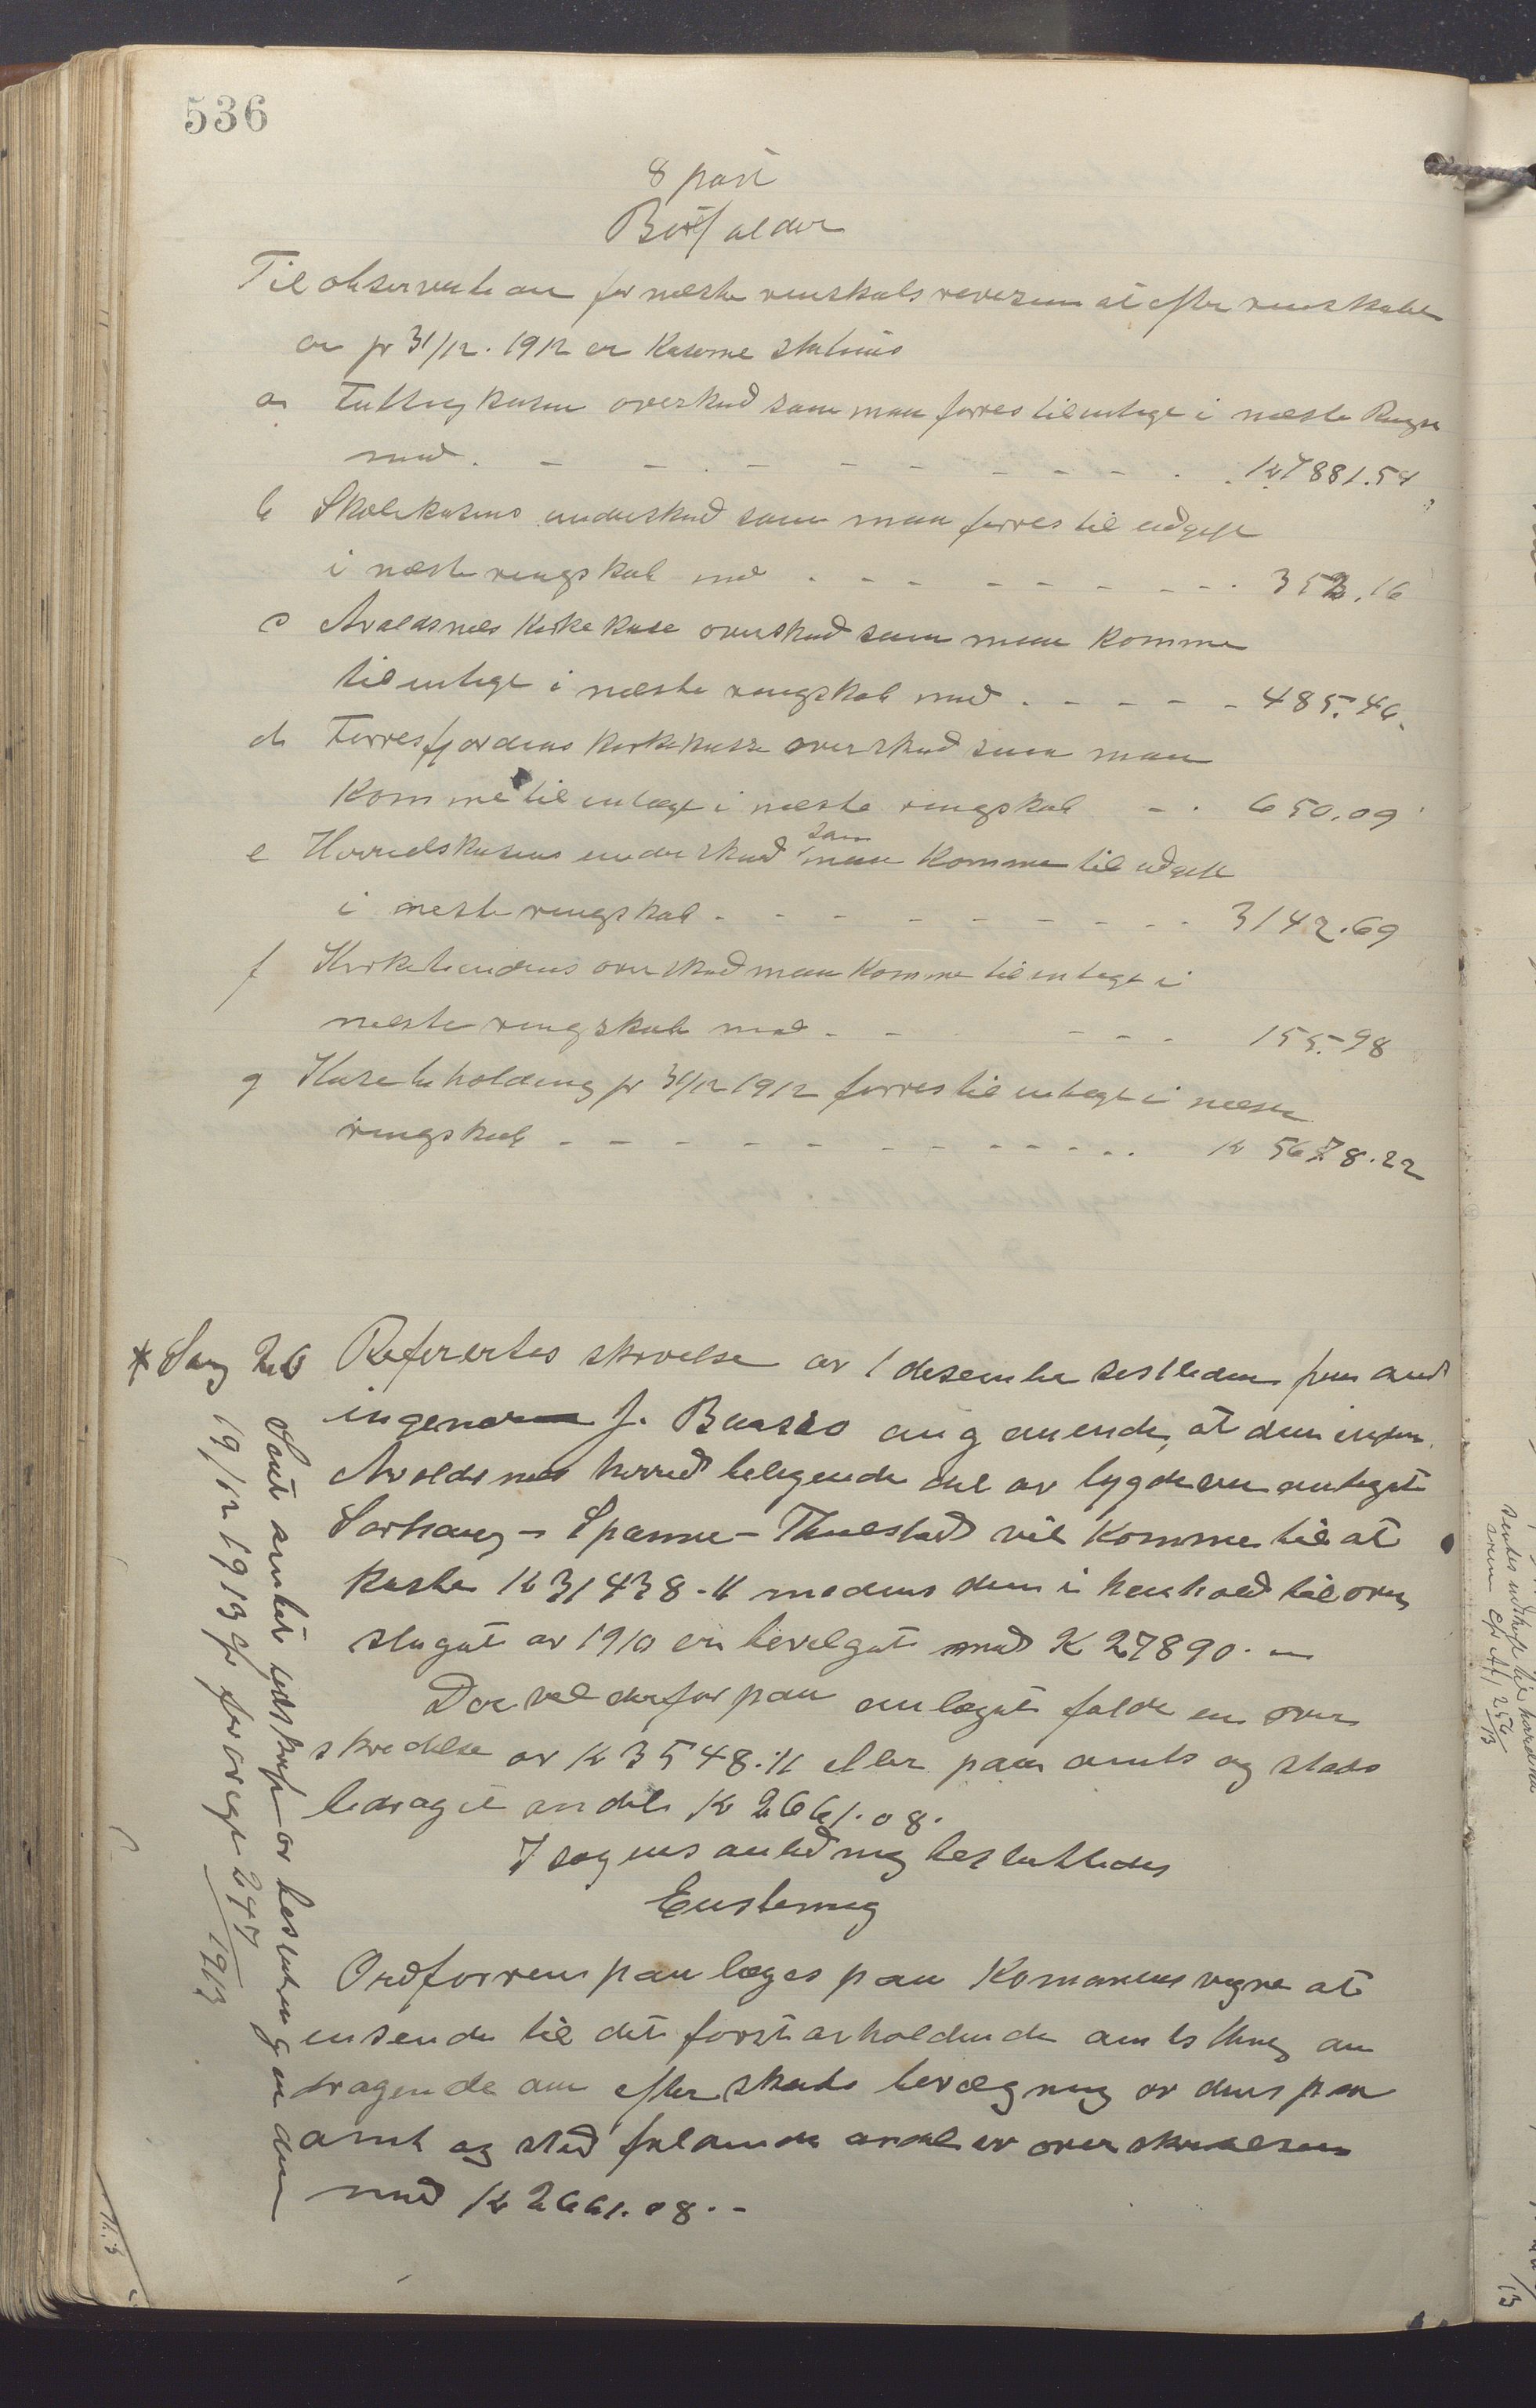 536
8 post
Bortfalder
Til observation for næste renskabs revesion at efter renskabet
er pr 31/12. 1912 er Kaserne status
a Fattigkasen overskud som maa førres til intægt i næste Regn
med. - - - - - - - - - Kr 7881.54
b Skolekasens underskud som maa førres til udgift
i næste rengskab med - - - - - - - 352.16
c Avaldsnes Kirkekase overskud som maa komme
til integt i næste rengskab med - - - - - 485.46
d Førresfjordens kirkekasse overskud som maa
komme til intægt i næste rengskab - - 650.09
e Herredskasens underskud som maa komme til udgift
i neste rengskab - - - - - - - - 3142.69
f Kirketiendens overskud maa komme til integt i
næste rengskab med - - - - - 155.98
g Kasebeholdning pr 31/12 1912 førres til integt i næste
rengskab - - - - - - - - - - Kr 5678.22
* Sag 26 Referertes skrivelse av 1 desember sistleden fra amts
ingenør J. Baasro angaaende, at den inden
Avaldsnes herred beligende del av bygdeveianlegget
Sørhaug - Spanne - Thuestad vil komme til at
koste Kr 31438.11 medens den i henhold til over
slaget av 1910 er bevilget med K 27890. -
Der vel derfor paa anlæget falde en over
skredelse av Kr 3548.11 eller paa amts og stads
bidraget andel Kr 2661.08.
I sagens anledning besluttedes
Enstemig
Ordførren paalæges paa Komunens vegne at
insende til det først avholdende amtsthing an
dragende om efterskuds bevægning av dens paa
amt og stad faldende andel av overskredelsen
med Kr 2661.08. -
Sendt amtet utskrift av beslutningen den
19/12 1913 for sak 247/1913